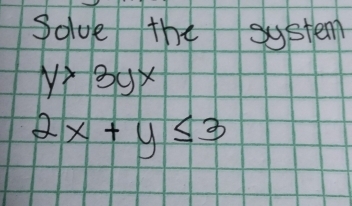 Solve the system
y > 3yx
2x + y ≤ 3